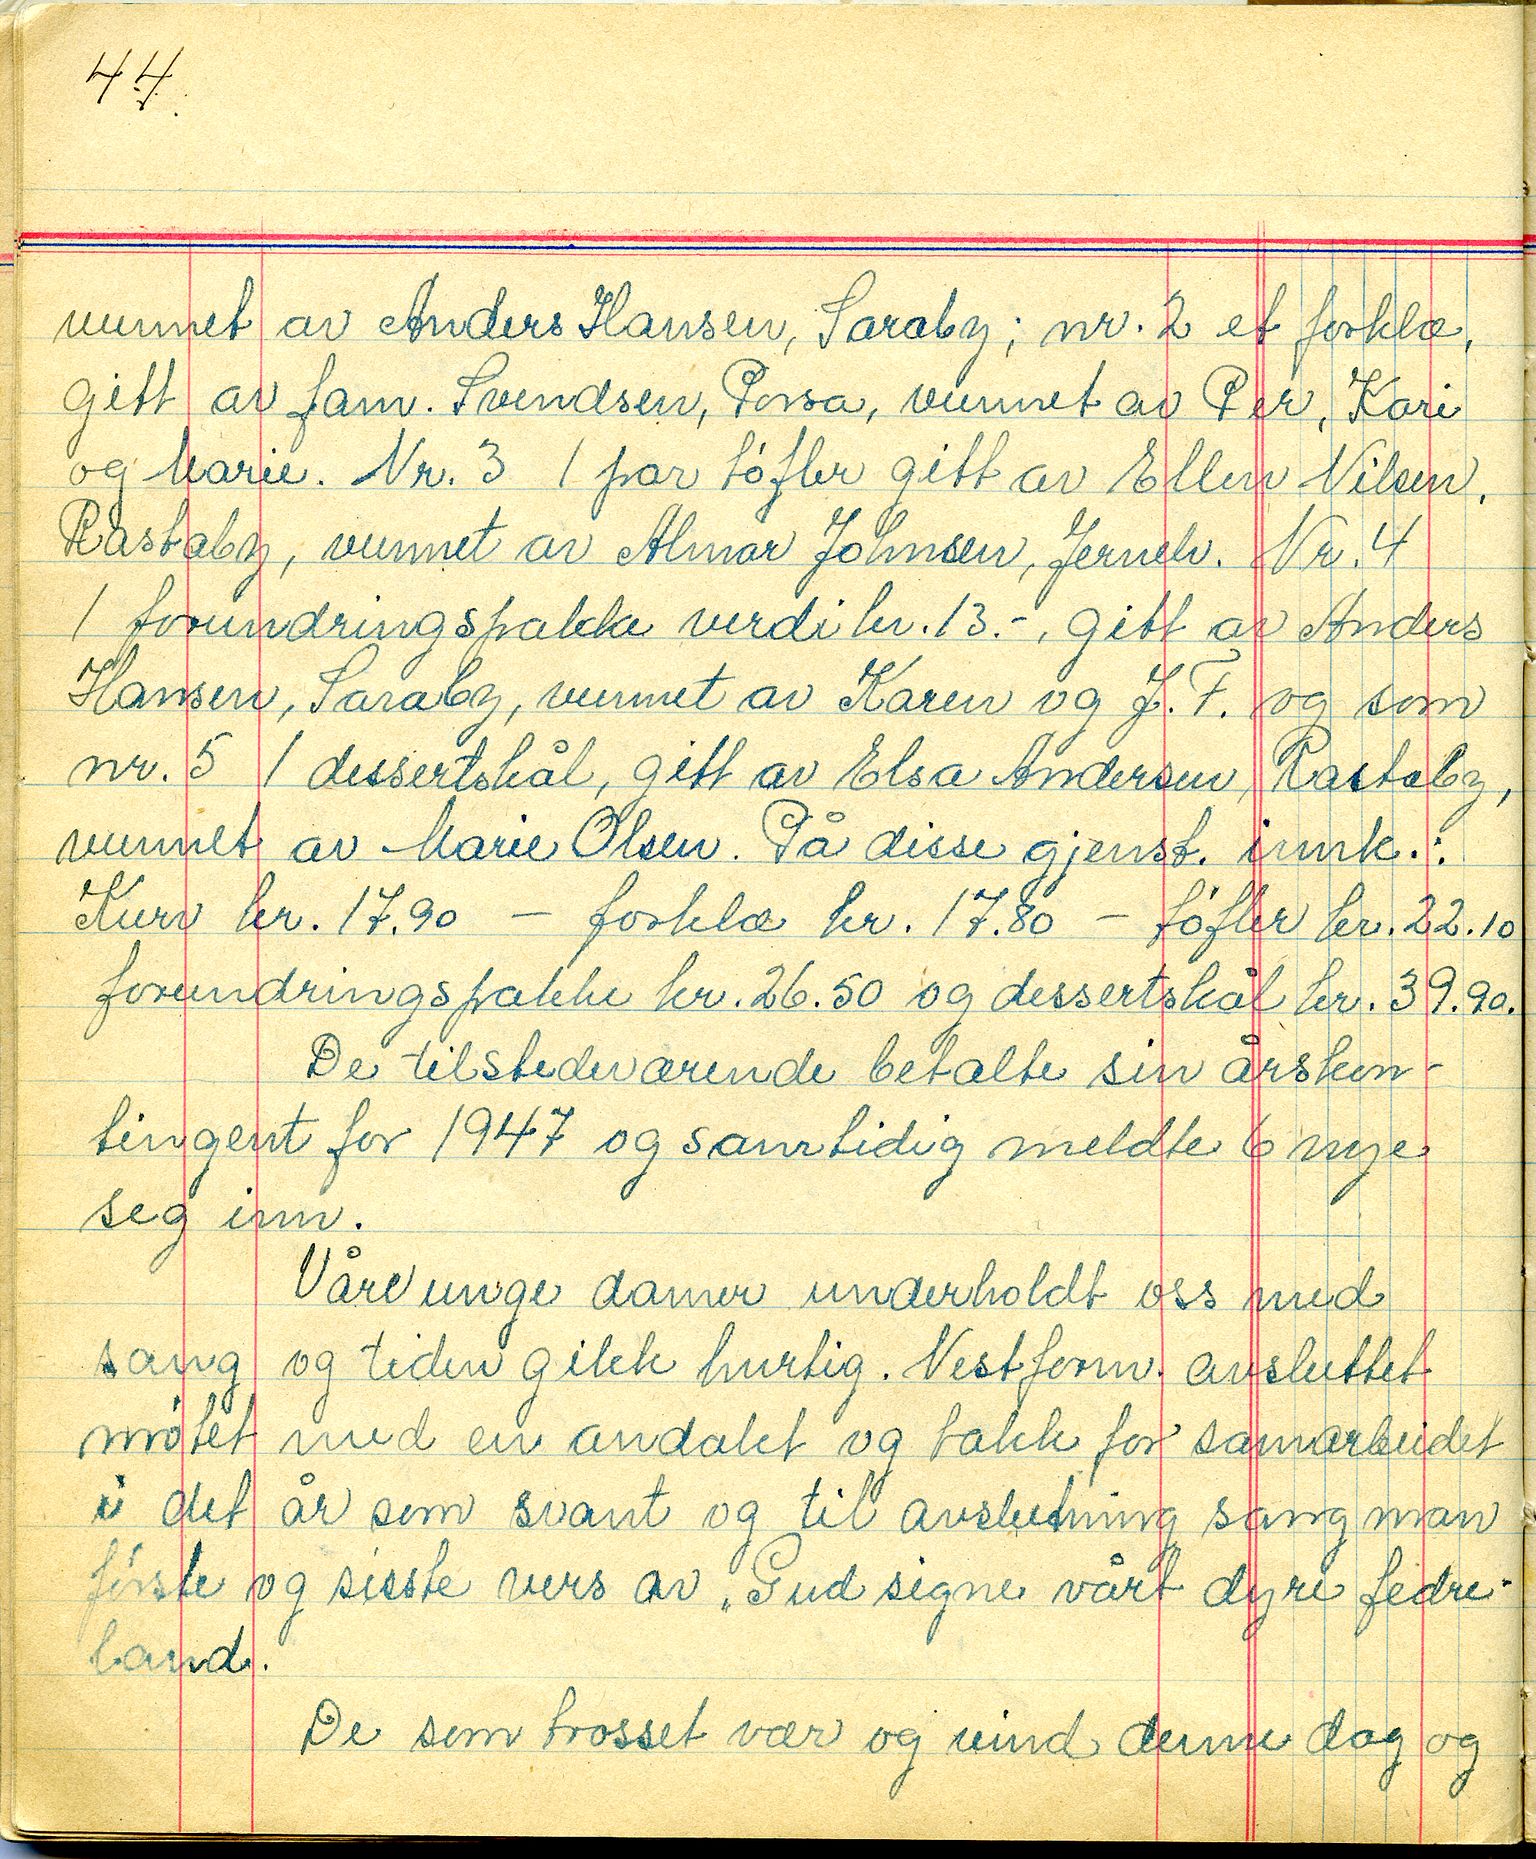 44.
vunnet av Anders Hansen, Saraby; nr. 2 et forklæ,
gitt av fam. Svendsen, Porsa, vunnet av Per, Kari
og Marie. Nr. 3 1 par tøfler gitt av Ellen Nilsen,
Rastaby, vunnet av Almar Johnsen, Jernelv. Nr. 4
1 forundringspakke verdi kr. 13.-, gitt av Anders
Hansen, Saraby, vunnet av Karen og J. F. og som
nr. 5 1 dessertskål, gitt av Elsa Andersen, Rastaby,
vunnet av Marie Olsen. På disse gjenst. innk.:
Kurv kr. 17.90 – forklæ kr. 17.80 – tøfler kr. 22.10
forundringspakke kr. 26.50 og dessertskål kr. 39.90.
De tilstedeværende betalte sin årskon-
tingent for 1947 og samtidig meldte 6 nye
seg inn.
Våre unge damer underholdt oss med
sang og tiden gikk hurtig. Nestform. avsluttet
møtet med en andakt og takk for samarbeidet
i det år som svant og til avslutning sang man
første og siste vers av „Gud signe vårt dyre fedre-
land.
De som trosset vær og vind denne dag og